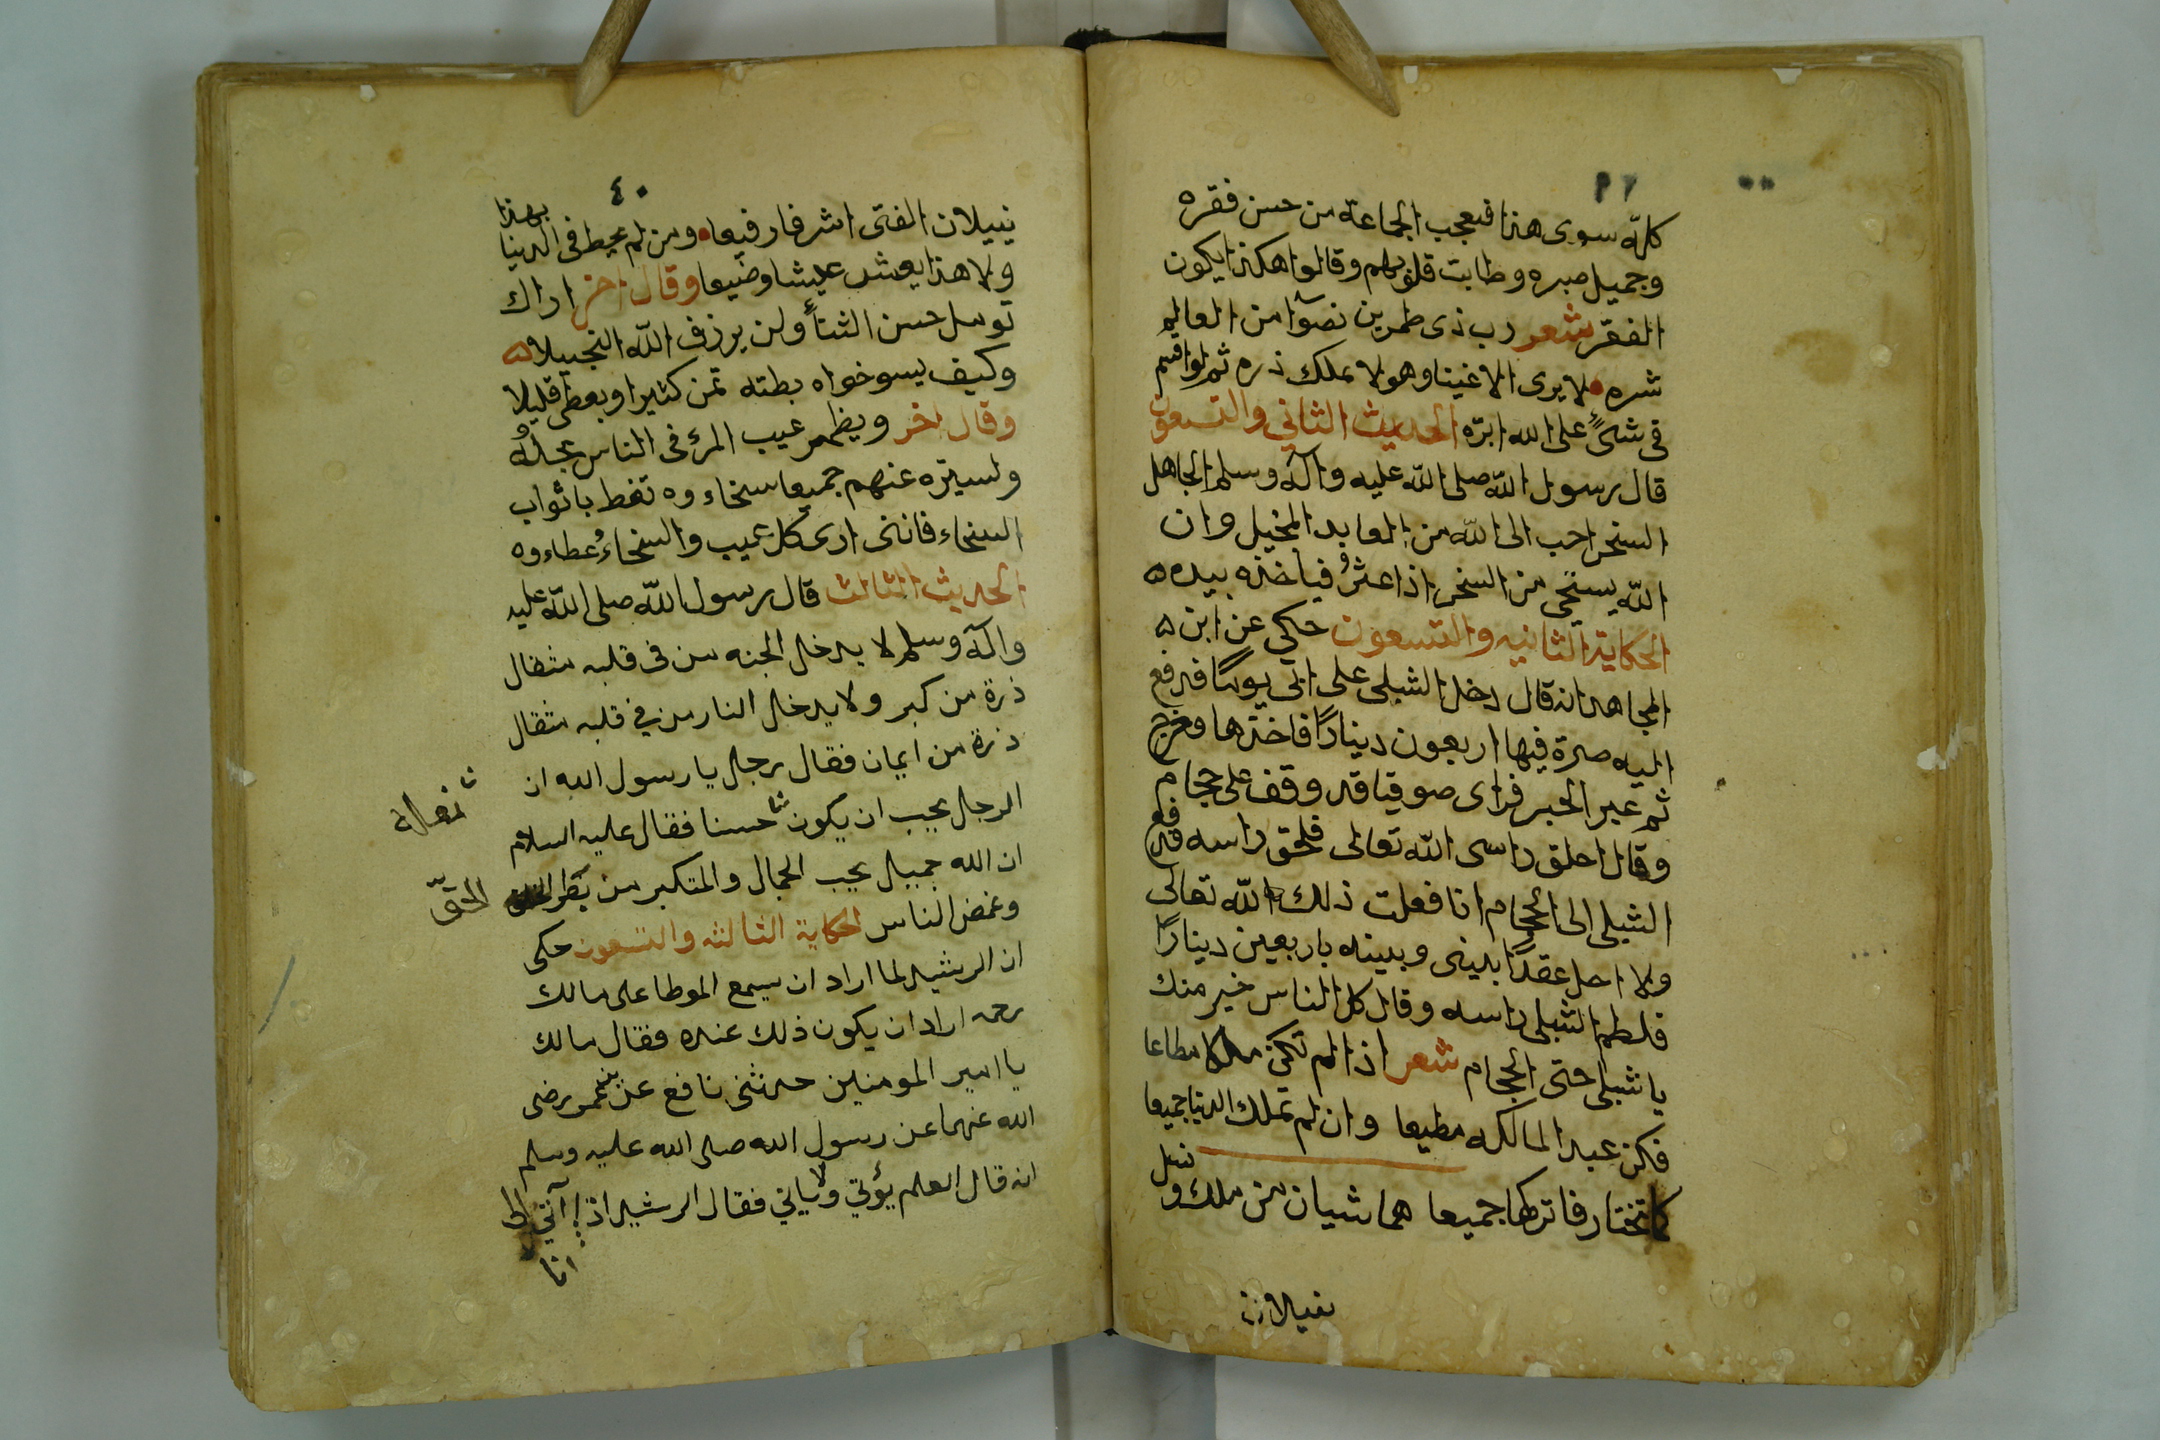 كله سوى هذا فتعجب الجماعة من حسن فقره
وجميل صبره وطابت قلوبهم وقالوا هكذا يكون
الفقر شعر رب ذى طمرين نضوا من العالم
شره لا يرى الا غينا وهو لا يملك ذره ثم لو اقسم
فى شئ على الله ابره الحديث الثاني والتسعون
قال رسول الله صلى الله عليه وآله وسلم الجاهل
السخى احب الى الله من العابد البخيل وان
الله يستحي من السخى اذا عثر فياخذه بيده
الحكاية الثانيه والتسعون حكي عن ابن
المجاهد انه قال دخل الشبلى على ابي يوما فدفع
اليه صرة فيها اربعون دينارًا فاخذها وخرج
ثم عبر الجسر فراى صوفيا قد وقف على حجام
وقال احلق راسى الله تعالى فحلق راسه فدفع
الشبلى الى الحجام انا فعلت ذلك لله تعالى
ولا احل عقدًا بينى وبينه باربعين دينارًا
فلطم الشبلى راسه وقال كل الناس خير منك
يا شبلى حتى الحجام شعر اذا لم تكن ملكا مطاعا
فكن عبد المالكه مطيعا وان لم تملك الدنيا جميعا
كما تختار فاتركها جميعا هما شيان من ملك ونسك
ينيلان
٤٠
ينيلان الفتى اشرفا رفيعا ومن لم يحط فى الدينا بهذا
ولا هذا يعش عيشا وضيعا وقال اخر اراك
تومل حسن الثناء ولن يرزق الله البخيلا
وكيف يسود اخو بطنه يمن كثيرا ويعطى قليلا
وقال اخر ويظهر عيب المرء فى الناس بخله
وتستره عنهم جميعا سخاءوه تغط باثواب
السخاء فاننى ارى كل عيب والسخاء غطاءوه
الحديث الثالث قال رسول الله صلى الله عليه
وآله وسلم لا يدخل الجنه من فى قلبه مثقال
ذرة من كبر ولا يدخل النار من في قلبه مثقال
ذرة من ايمان فقال رجل يا رسول الله ان
الرجل يحب ان يكون حسنا فقال عليه السلام
ان الله جميل يحب الجمال والمتكبر من بَطَر الحقّ
وغمض الناس الحكاية الثالثه والتسعون حكى
ان الرشيد لما اراد ان يسمع الموطا على مالك
رحمه اراد ان يكون ذلك عنده فقال مالك
يا امير المومنين حدثنى نافع عن بن عمر رضى
الله عنهما عن رسول الله صلى الله عليه وسلم
انه قال العلم يؤتي ولا ياتي فقال الرشيد اذا آتي
انا